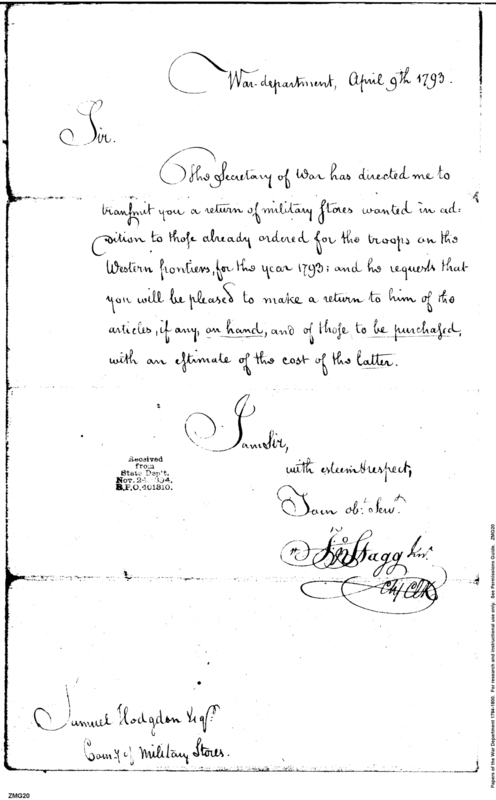 War-department, April 9th 1793.
Sir.
The Secretary of War has directed me to
transmit you a return of military stores wanted in ad:
dition to those already ordered for the troops on the
Western frontiers, for the year 1793; and he requests that
you will be pleased to make a return to him of the
articles, if any, on hand, and of those to be purchased,
with an estimate of the cost of the latter.
I am Sir,
with esteem & respect,
Your obt. Servt.
Jno Stagg Junr.
Chf Clk
Received
from
State Dep't.
Nov. 24
R.P.O. 401810.
Samuel Hodgdon Esqr.
Comy of Military Stores.
ZMG20
Papers of the War Department 1784-1800. For research and instructional use only. See Permissions Guide. ZMG20